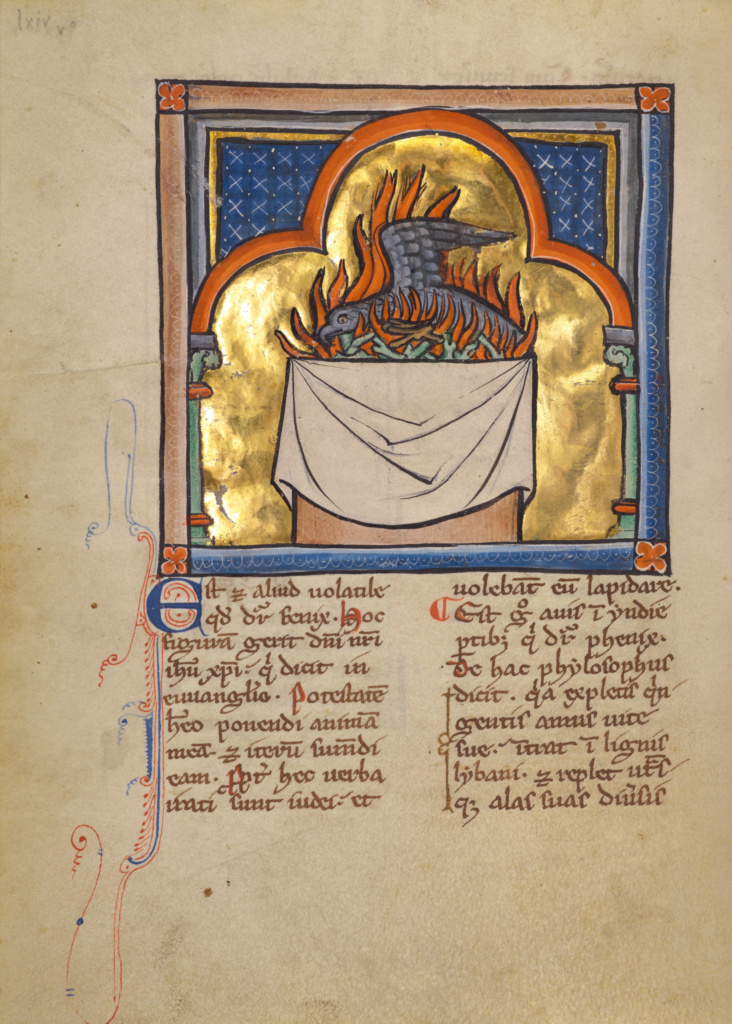 lxiiij vo
Est ⁊ aliud uolatile
qđ dr̄ fenix. Hoc
figurā gerit dnı̄ nr̄i
ihū xp̄i. q̇ dicit in
euuanglīo. Potestatē
h̄eo ponendi animā
meā. ⁊ iterū sumēdi
eam. Prr̄ hec uerba
irati sunt iudei. et
uolebāt eū lapidare.
Est gͦ auis ī yndie
ptibꝫ q̇ dr̄ phenix.
De hac phylosophus
dicit. q̄a expletis q̇n
gentis annis uite
sue. ītrat ī lignis
lybani. ⁊ replet ut̄s
qꝫ alas suas diu̇sis